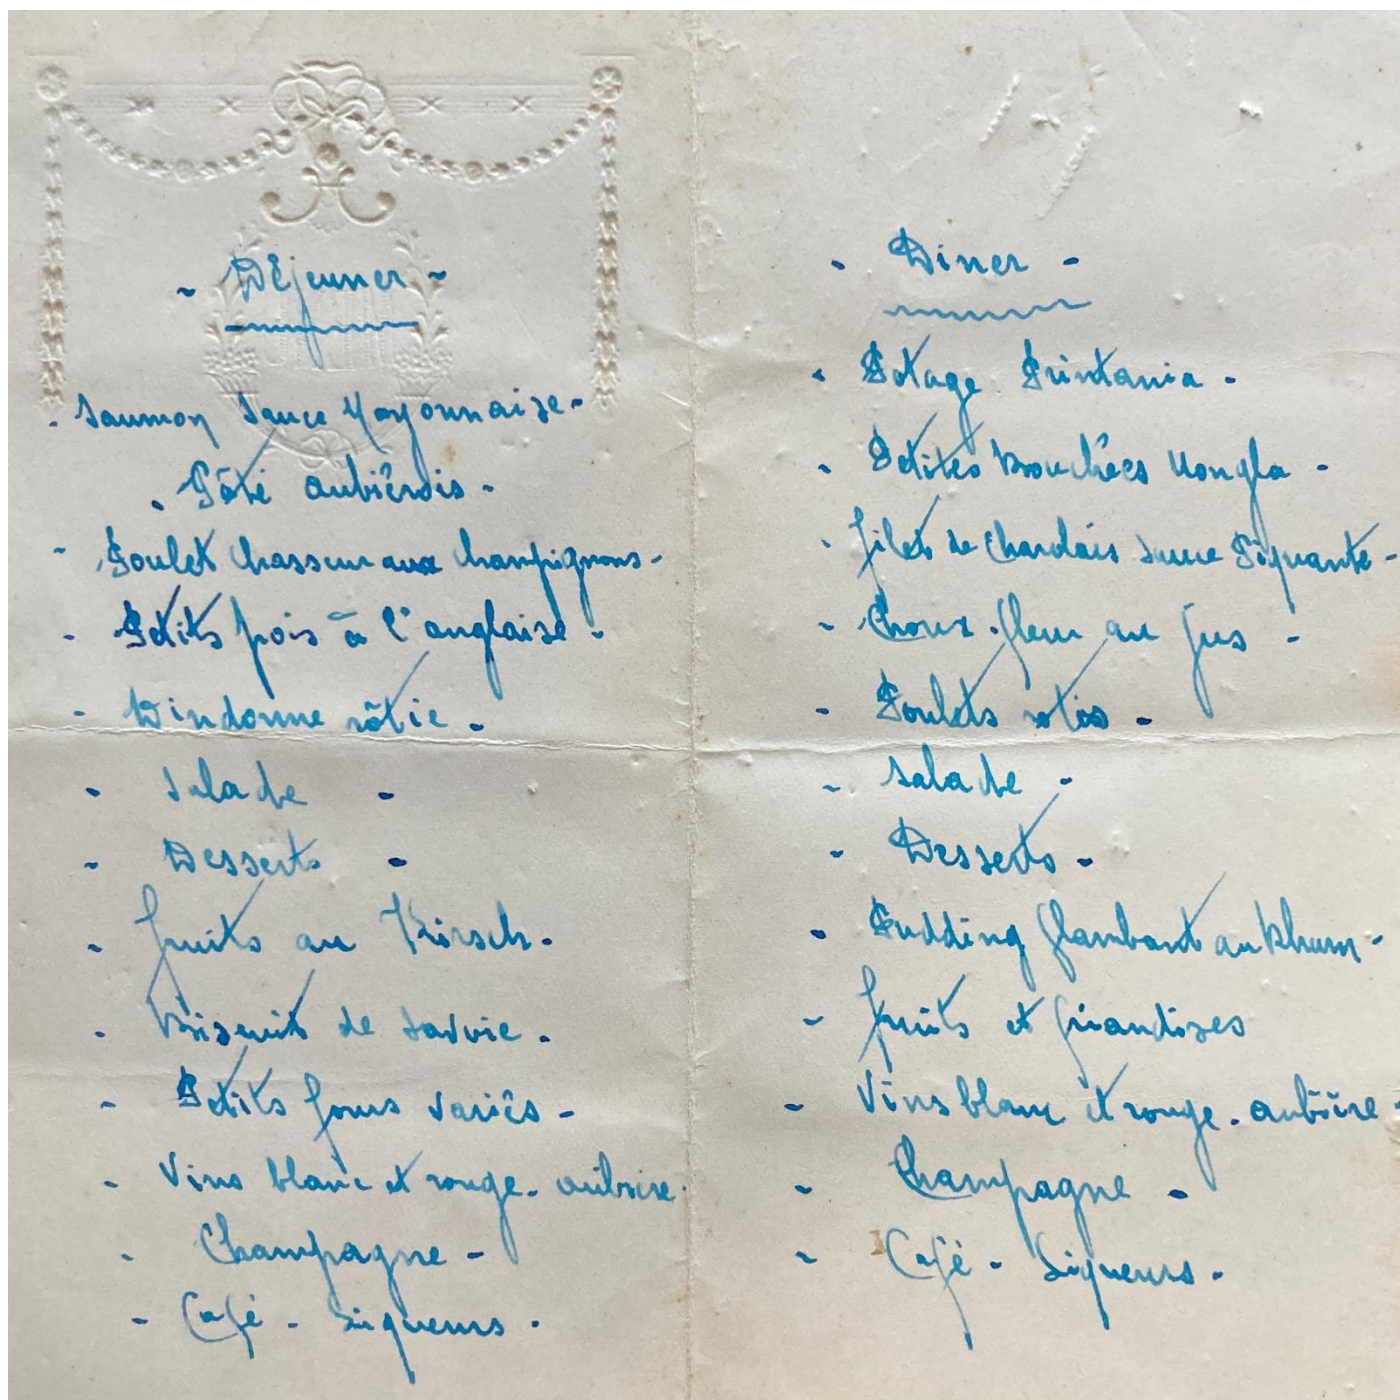 - Déjeuner -
- Saumon Sauce Mayonnaise -
- Pâté aubièrois -
- Poulet chasseur aux champignons -
- Petits pois à l'anglaise -
- Dindonne rôtie -
- Salade -
- Desserts -
- fruits au Kirsch -
- Biscuit de Savoie -
- Petits fours variés -
- Vins blanc et rouge -
- Champagne -
- Café - Liqueurs -
- Diner -
- Potage Printania -
- Petites Bouchées -
- filet de Charolais Sauce Piquante -
- Choux-fleur au jus -
- Poulets rotis -
- Salade -
- Desserts -
- Pudding flambant au Rhum -
- fruits et friandises
- Vins blanc et rouge -
- Champagne -
- Café - Liqueurs -